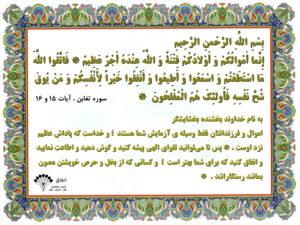 بِسْمِ اللَّهِ الرَّحْمنِ الرَّحِيمِ
إِنَّما أَمْوالُكُمْ وَ أَوْلادُكُمْ فِتْنَةٌ وَ اللَّهُ عِنْدَهُ أَجْرٌ عَظِيمٌ * فَاتَّقُوا اللَّهَ
مَا اسْتَطَعْتُمْ وَ اسْمَعُوا وَ أَطِيعُوا وَ أَنْفِقُوا خَيْراً لِأَنْفُسِكُمْ وَ مَنْ يُوقَ
شُحَّ نَفْسِهِ فَأُولئِكَ هُمُ الْمُفْلِحُونَ *
سوره تغابن ، آیات ۱۵ و ۱۶
به نام خداوند بخشنده بخشایشگر
اموال و فرزندانتان فقط وسیله ی آزمایش شما هستند ؛ و خداست که پاداش عظیم
نزد اوست . * پس تا می‌توانید تقوای الهی پیشه کنید و گوش دهید و اطاعت نمایید
و انفاق کنید که برای شما بهتر است ؛ و کسانی که از بخل و حرص خویشتن مصون
بمانند رستگارانند . *
انفاق